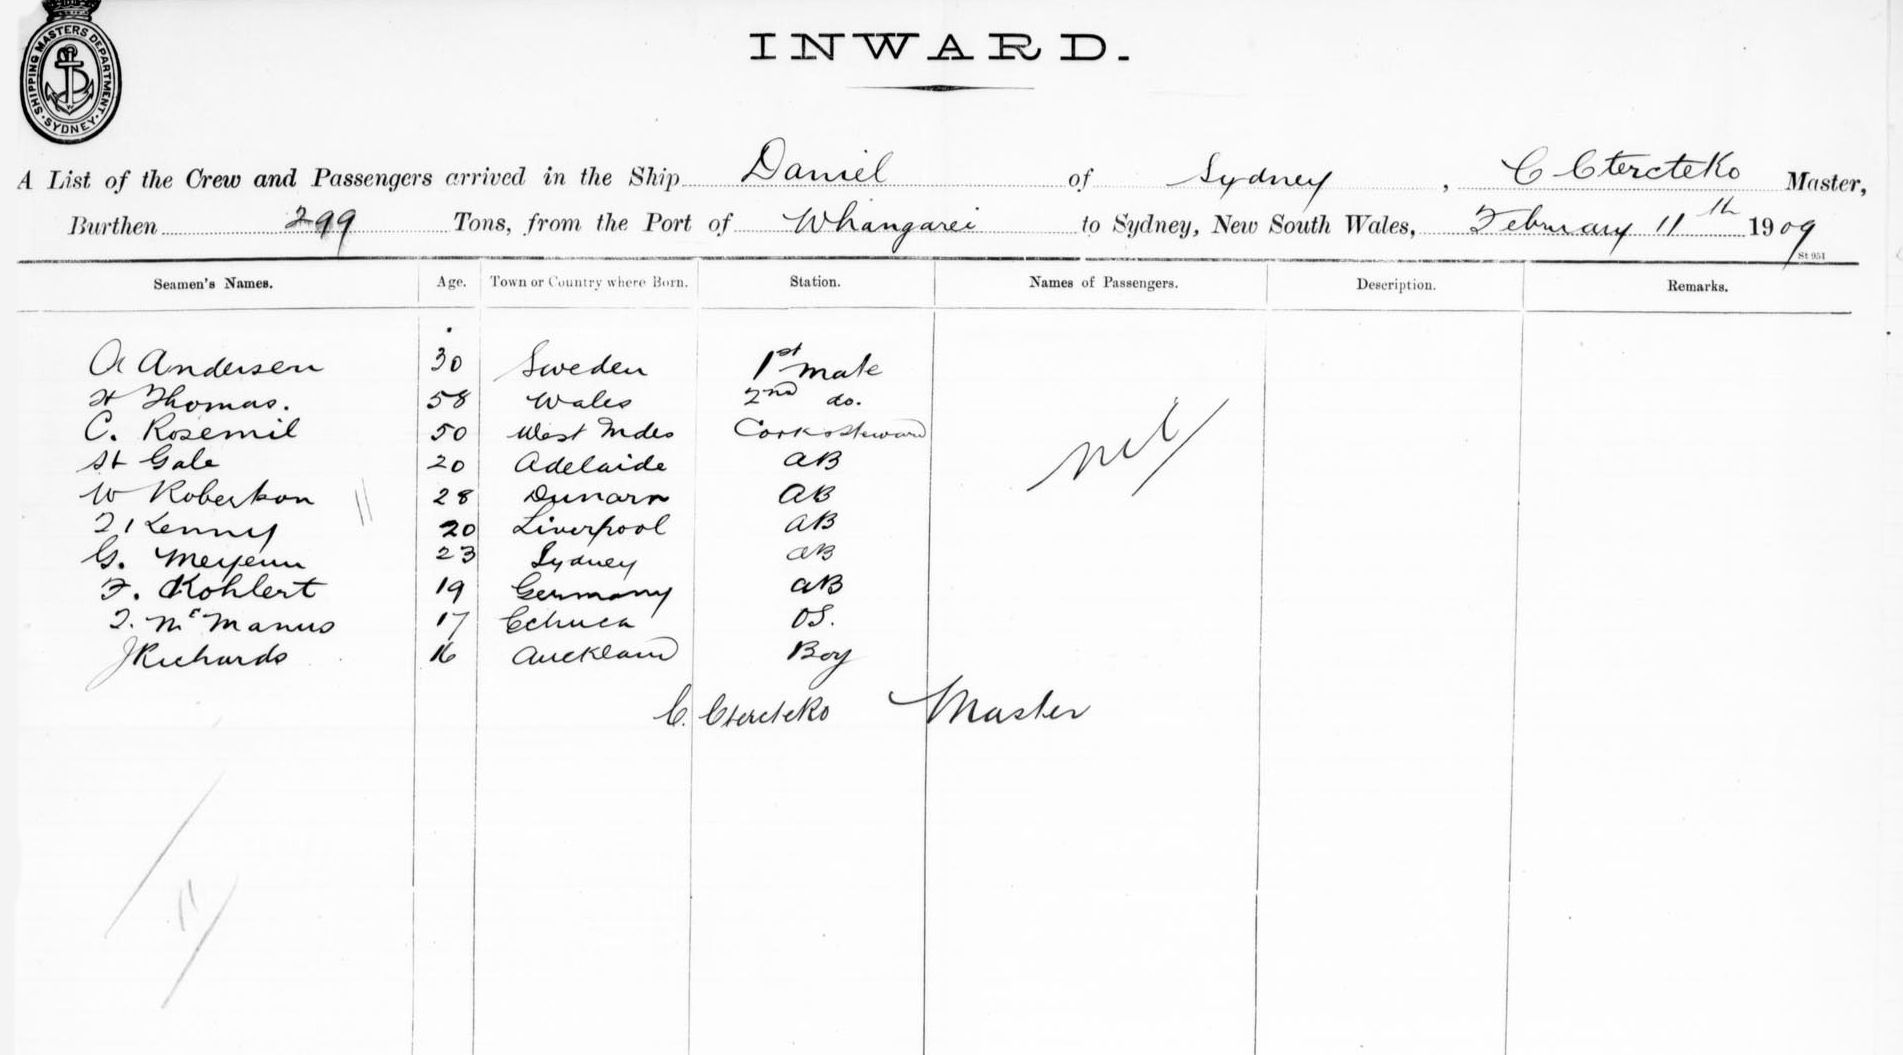 SHIPPING MASTERS DEPARTMENT. SYDNEY.
INWARD.
A List of the Crew and Passengers arrived in the Ship Daniel of Sydney, C Ctercteko Master,
Burthen 299 Tons, from the Port of Whangarei to Sydney, New South Wales, February 11th 1909
St 951
Seamen's Names. Age. Town or Country where Born. Station. Names of Passengers. Description. Remarks.
A Andersen 30 Sweden 1st mate
H Thomas. 58 Wales 2nd do.
C. Rosemil 50 West Indes Cook & Steward
St Gale 20 Adelaide AB
nil
W Robertson 28 AB
Kenny 20 Liverpool AB
G. Meyenn 23 Sydney AB
F. Kohlert 19 Germany AB
McManus 17 Echuca OS.
J Richards 16 Auckland Boy
C. Ctercteko Master
11